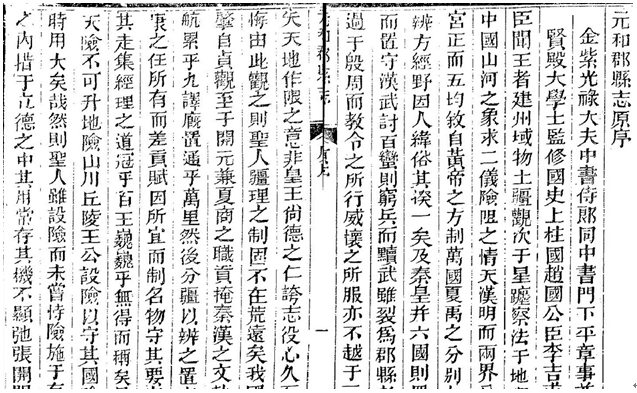 元和郡縣志原序
金紫光祿大夫中書侍郎同中書門下平章事
賢殿大學士監修國史上柱國趙國公臣李吉
臣聞王者建州域物土疆觀次于星躔察法于地
中國山河之象求二儀險阻之情天漢明而兩界
宮正而五均敘自黃帝之方制萬國夏禹之分別
辨方經野因人緯俗其揆一矣及秦皇幷六國則
而置守漢武討百蠻則窮兵而黷武雖裂爲郡縣
過于殷周而敎令之所行威懷之所服亦不越于
元和郡縣志
原序
一
失天地作限之意非皇王尙德之仁誇志役心久
悔由此觀之則聖人疆理之制固不在荒遠矣我
肇自貞觀至于開元兼夏商之職貢掩秦漢之文
航累乎九譯廐置通乎萬里然後分疆以辨之置
康之任所有而差貢賦因所宜而制名物守其要
其走集經理之道冠乎百王巍巍乎無得而稱矣
天險不可升地險山川丘陵王公設險以守其國
時用大矣哉然則聖人雖設險而未嘗恃險施于
之內措于立德之中其用常存其機不顯弛張開